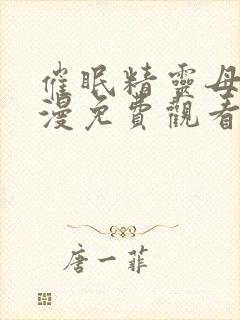 催眠精靈母
漫免費觀看
唐一菲